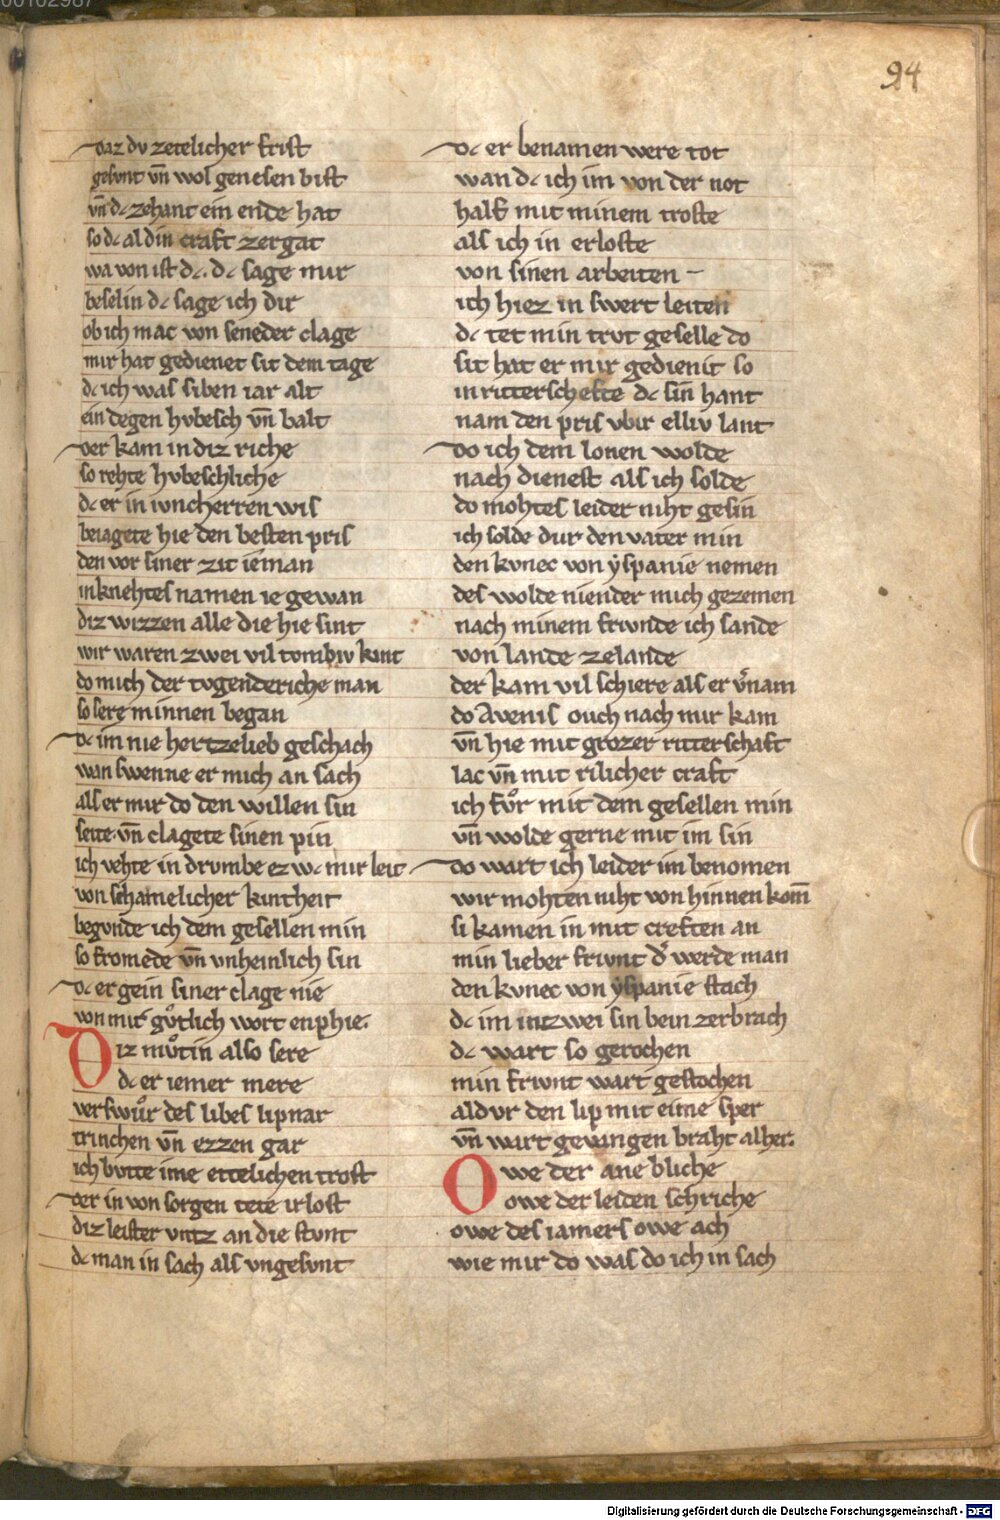 94
daz dv zetelicher frist
gesvnt vn̄ wol genesen bist
vn̄ dc zehant ein ende hat
so dc al din craft zergat
wa von ist dc. dc sage mir
beselin dc sage ich dir
ob ich mac von seneder clage
mir hat gedienet sit dem tage
dc ich was siben iar alt
ein degen hvbesch vn̄ balt
der kam in diz riche
so rehte hvbeschliche
dc er in ivncherren wis
beiagete hie den besten pris
den vor siner zit ieman
in knehtes namen ie gewan
diz wizzen alle die hie sint
wir waren zwei vil tombiv kint
do mich der tvgenderiche man
so sere minnen began
dc im nie hertzelieb geschach
wan swenne er mich an sach
als er mir do den willen sin
seite. vn̄ clagete sinen pin
ich vehte in drvmbe ez wc mir leit
von schamelicher kintheit
begvnde ich dem gesellen min
so fromede vn̄ vnheinlich sin
dc er gein siner clage nie
von mir gvͦtlich wort enphie.
Diz mvͦtin also sere
dc er iemer mere
verswuͦr des libes lipnar
trinchen vn̄ ezzen gar
ich bvtte ime ettelichen trost
der in von sorgen tete irlost
diz leister vntz an die stvnt
dc man in sach als vngesvnt
dc er benamen were tot
wan dc ich im von der not
half mit minem troste
als ich in erloste
von sinen arbeiten –
ich hiez in swert leiten
dc tet min trvt geselle do
sit hat er mir gedienit so
in ritterschefte dc sin hant
nam den pris vbir elliv lant
do ich dem lonen wolde
nach dienest als ich solde
do mohtes leider niht gesin
ich solde dur den vater min
den kvnec von ẏspanie nemen
des wolde niender mich gezemen
nach minem frivnde ich sande
von lande zelande
der kam vil schiere als er v̄nam
do Avenis ouch nach mir kam
vn̄ hie mit grozer ritterschaft
lac vn̄ mit rilicher craft
ich fvͦr mit dem gesellen min
vn̄ wolde gerne mit im sin
do wart ich leider im benomen
wir mohten niht von hinnen kom̄
si kamen in mit creften an
min lieber frivnt d̄ werde man
den kvnec von ẏspanie stach
dc im intzwei sin bein zerbrach
dc wart so gerochen
min frivnt wart gestochen
aldvr den lip mit eime sper
vn̄ wart gevangen braht alher.
Owe der ane bliche
owe der leiden schriche
owe des iamers owe ach
wie mir do was do ich in sach
Digitalisierung gefördert durch die Deutsche Forschungsgemeinschaft - DFG